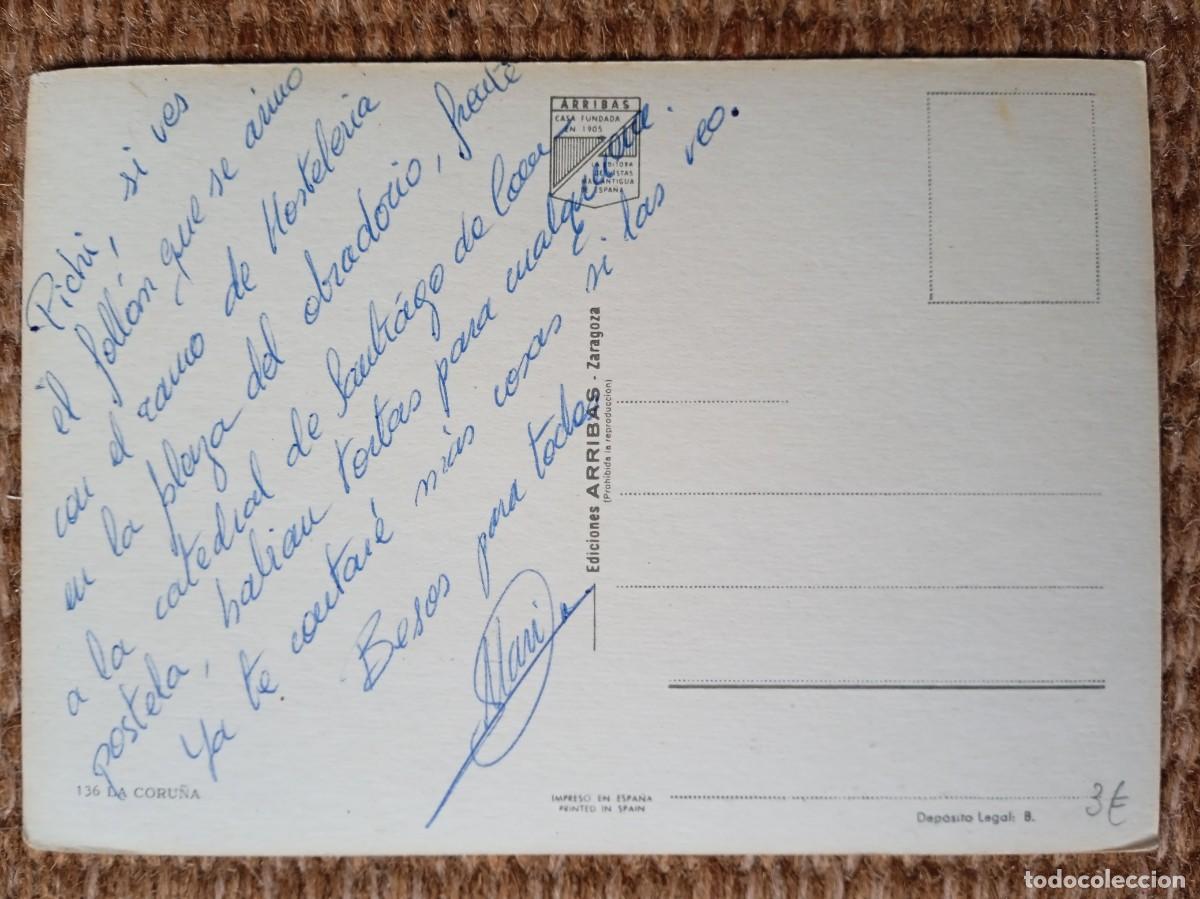 Pichi, si ves
el follón que se armo
con el ramo de Hosteleria
en la plaza del obradorio, frente
a la catedral de Santiágo de Com
postela, habian tortas para cualquiera.
Ya te contaré más cosas si las veo.
Besos para todos
Mari
136 LA CORUÑA
ARRIBAS
CASA FUNDADA
EN 1905
LA EDITORA
DE VISTAS
MAS ANTIGUA
DE ESPAÑA
Ediciones ARRIBAS - Zaragoza
(Prohibida la reproducción)
IMPRESO EN ESPAÑA
PRINTED IN SPAIN
Depósito Legal: B.
3€
todocoleccion